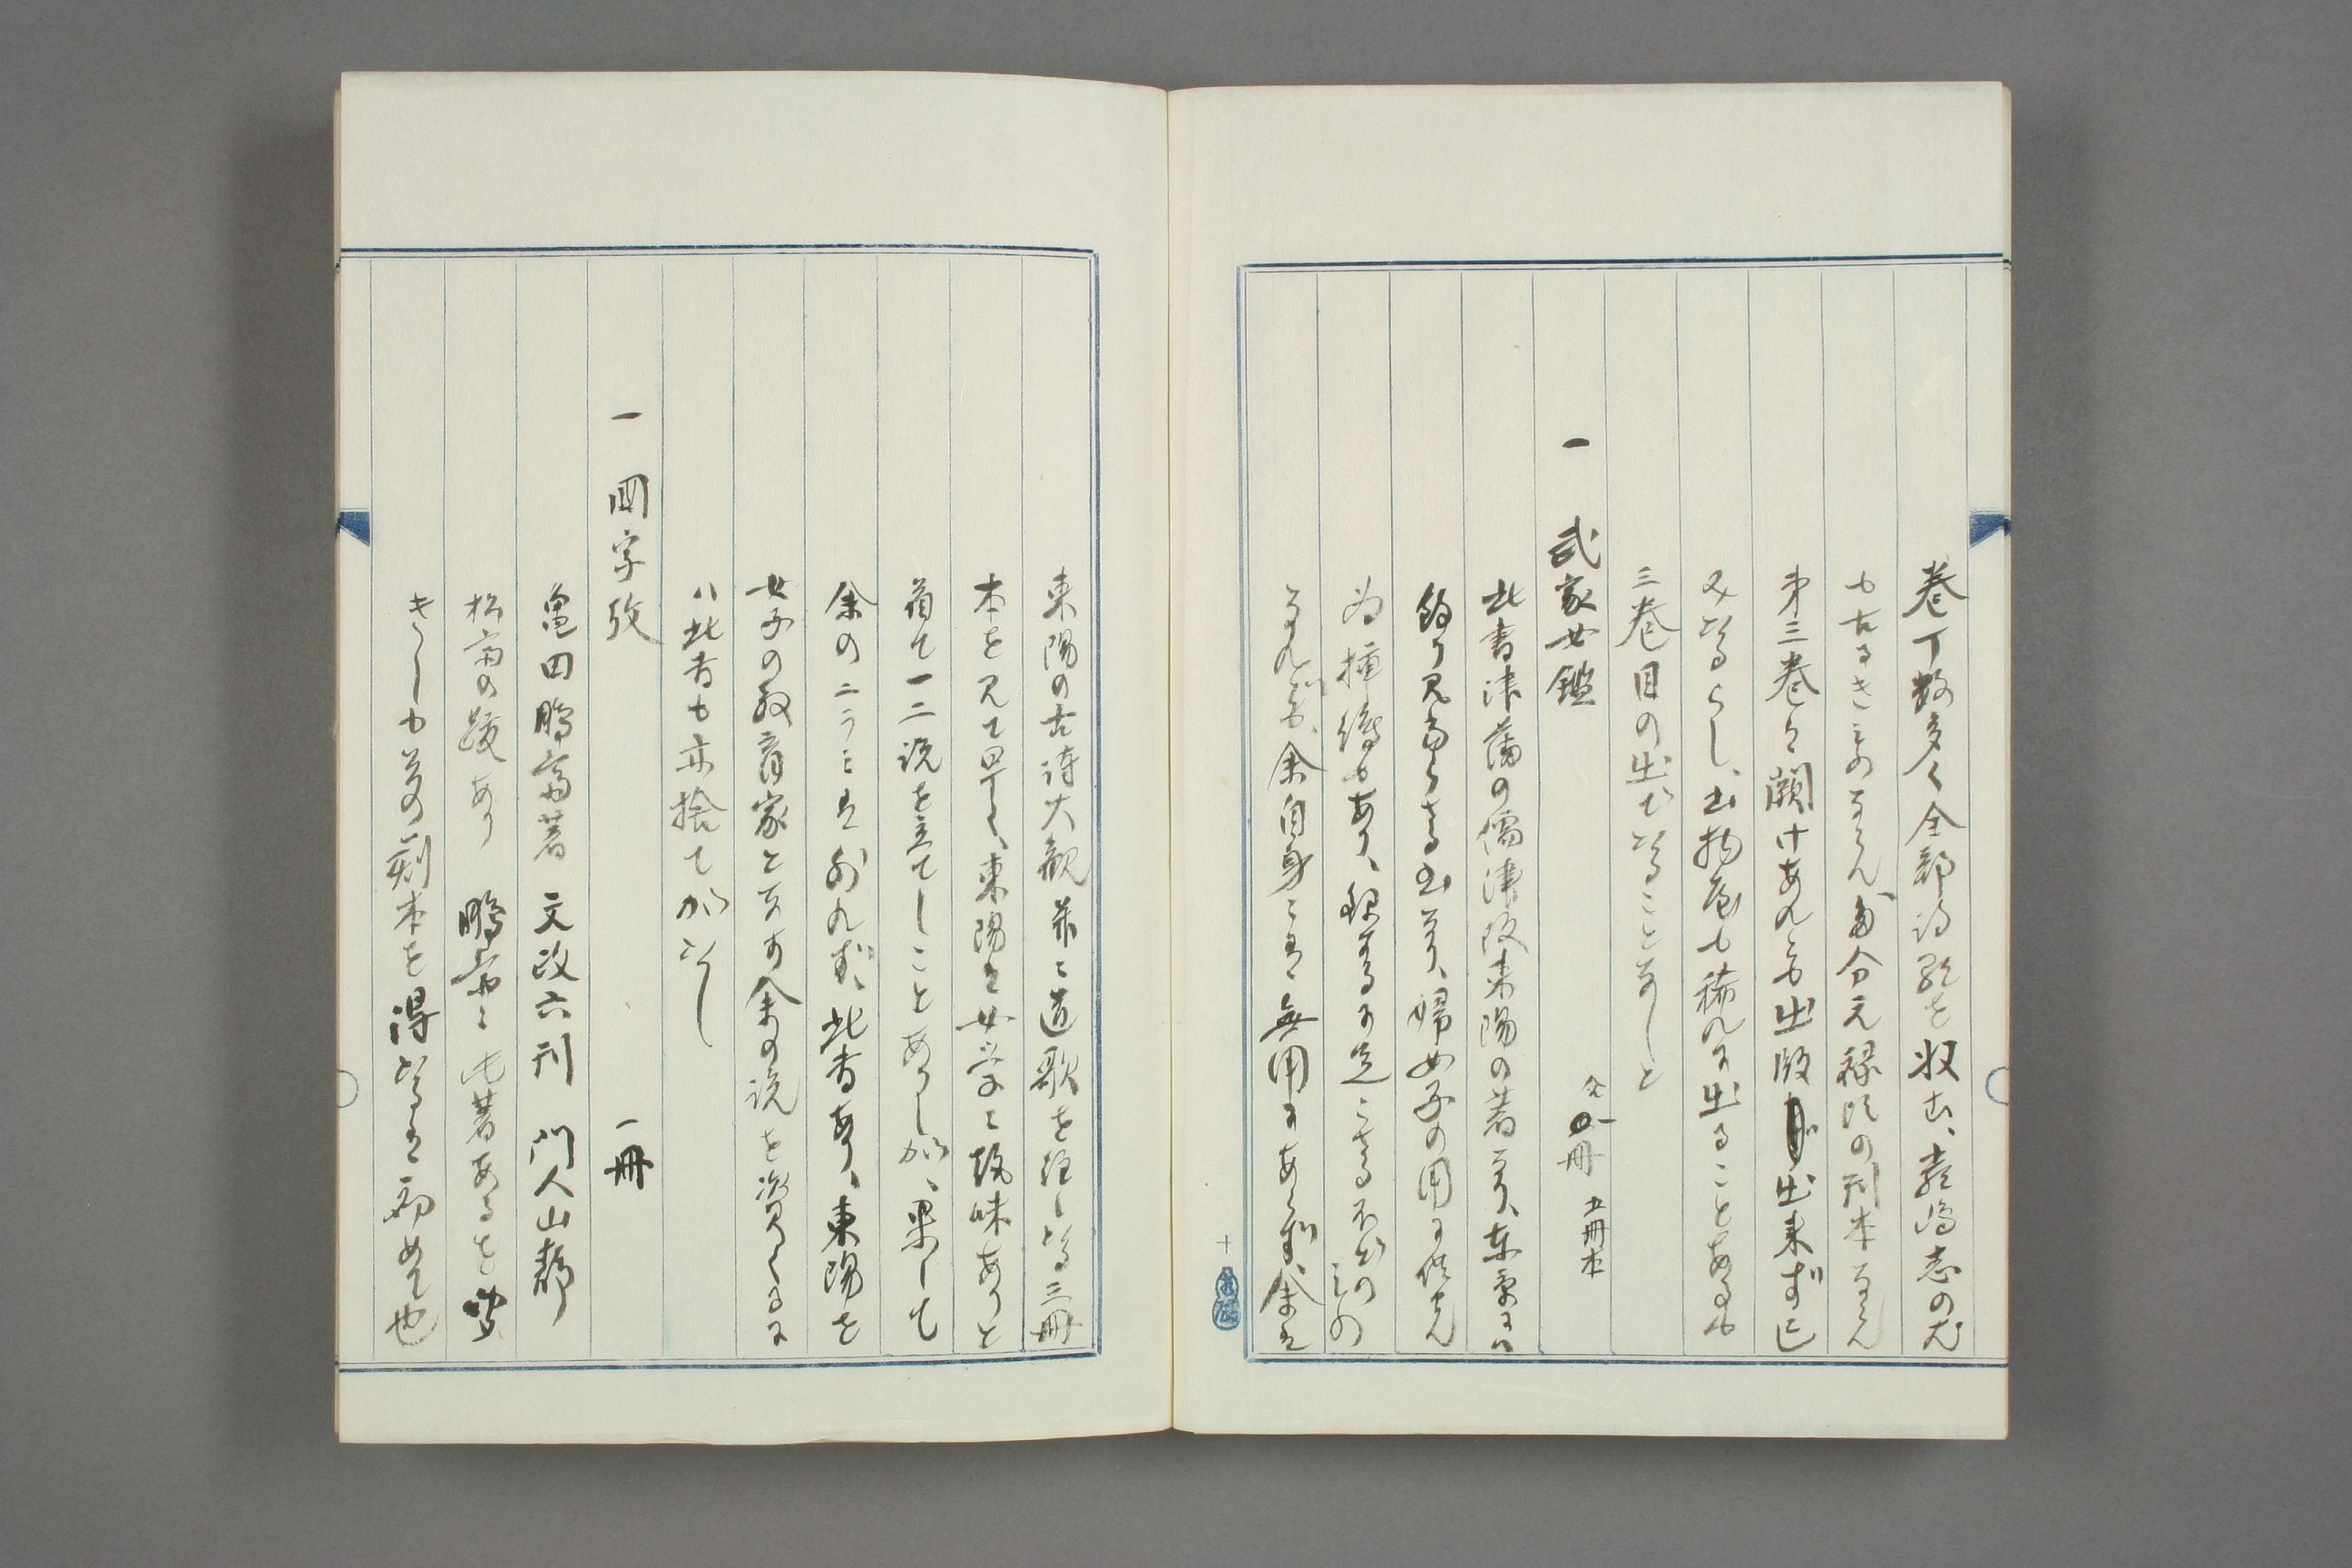 巻丁数多く全部の歌を収む、厳嶋志の尤
も古るきものならん、多分元禄頃の刊本ならん
第三巻を闕けあれども出版出来ずに
了たるらし、古物屋も稀れに出ることあるも
三巻目の出でたることなしと
一 武家女鑑 合一冊 五冊本
此書津藩の儒津阪東陽の著なり、東京には
余り見当らざる書なり、婦女子の用に供せん
為 挿絵もあり、珍するに足らざる本の如き
なれども、余自身には無用にあらず、余は
東陽の古詩大観並に道歌を種したる三冊
本を見て早く、東陽は女学に趣味ありと
着て一二説を立てしことありしが、果して
余のこうこは外れず、此書あり、東陽を
女子の教育家と云す余の説を資くるに
ハ此書も亦捨てがたし
一 国字攷 一冊
亀田鵬斎著 文政六刊 門人山静
松斎の跋あり 鵬斎に此著あるを聞
きしも其の刻本を得たるは初めて也
十